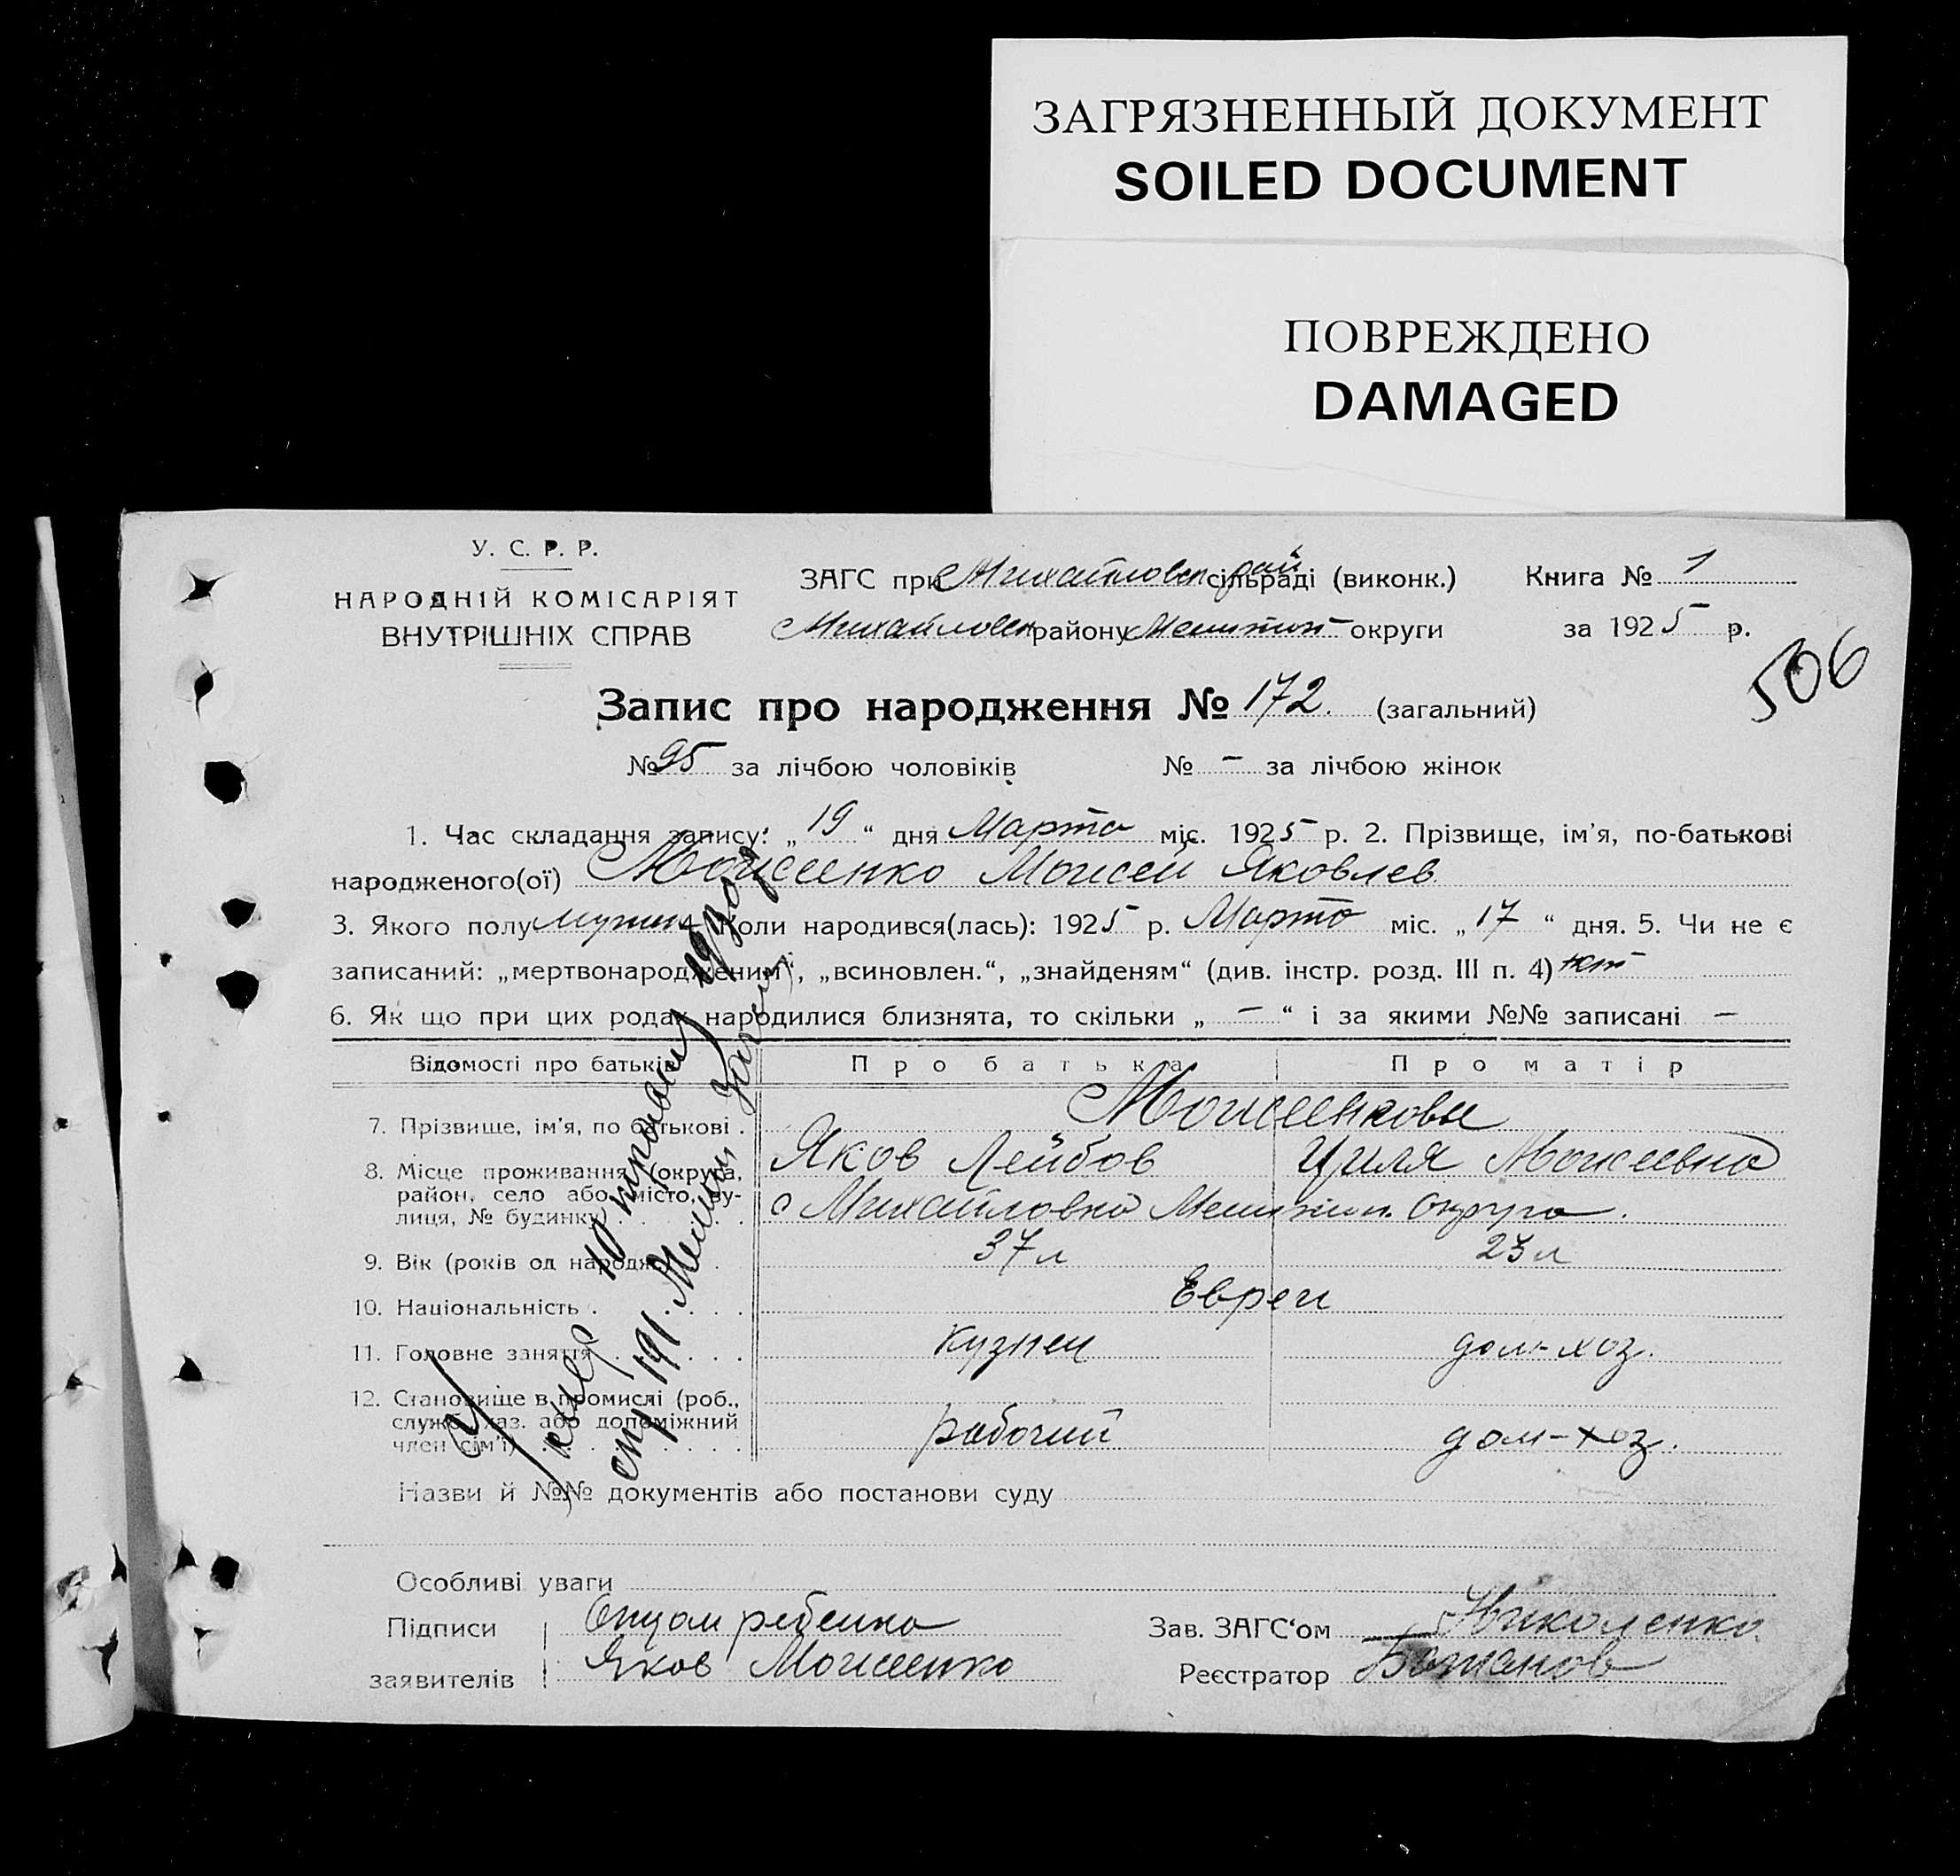 ЗАГРЯЗНЕННЫЙ ДОКУМЕНТ
SOILED DOCUMENT
ПОВРЕЖДЕНО
DAMAGED
У. С. Р. Р.
НАРОДНІЙ КОМІСАРІЯТ
ВНУТРІШНІХ СПРАВ
ЗАГС при Михайловск рай сільраді (виконк.) Книга № 1
Михайловск району Мелитоп округи за 1925 р.
506
Запис про народження № 172. (загальний)
№ 95 за лічбою чоловіків № – за лічбою жінок
1. Час складання запису: „ 19 “ дня Марта міс. 1925 р. 2. Прізвище, ім'я, по-батькові
народженого(ої) Моисеенко Моисей Яковлев
3. Якого полу мужск 4. Коли народився(лась): 1925 р. Марта міс. „ 17 “ дня. 5. Чи не є
записаний: „мертвонародженим“, „всиновлен.“, „знайденям“ (див. інстр. розд. III п. 4) нет
6. Як що при цих родах народилися близнята, то скільки „ – “ і за якими №№ записані –
Відомості про батьків Про батька Про матір
7. Прізвище, ім'я, по батькові . Моисеенковы
Яков Лейбов Циля Моисеевна
8. Місце проживання (округа,
район, село або місто, ву-
лиця, № будинку) . с Михайловка Мелитоп. округа.
9. Вік (років од народж. 37 л 23 л
10. Національність . Евреи
11. Головне заняття кузнец дом-хоз.
12. Становище в промислі (роб.,
служб. хаз. або допоміжний
член сім'ї) рабочий дом-хоз.
Назви й №№ документів або постанови суду
Особливі уваги
Підписи Отцом ребенка Зав. ЗАГС'ом Николенко
заявителів Яков Моисеенко Реєстратор
умер 194
ст 191. Мелитоп